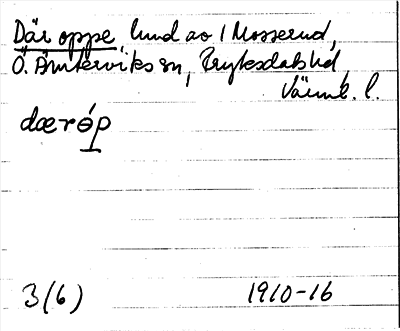 Där oppe lund av 1 Mosserud,
Ö. Ämterviks sn, Fryksdals hd,
Värml. l.
dærόp
3(6) 1910-16